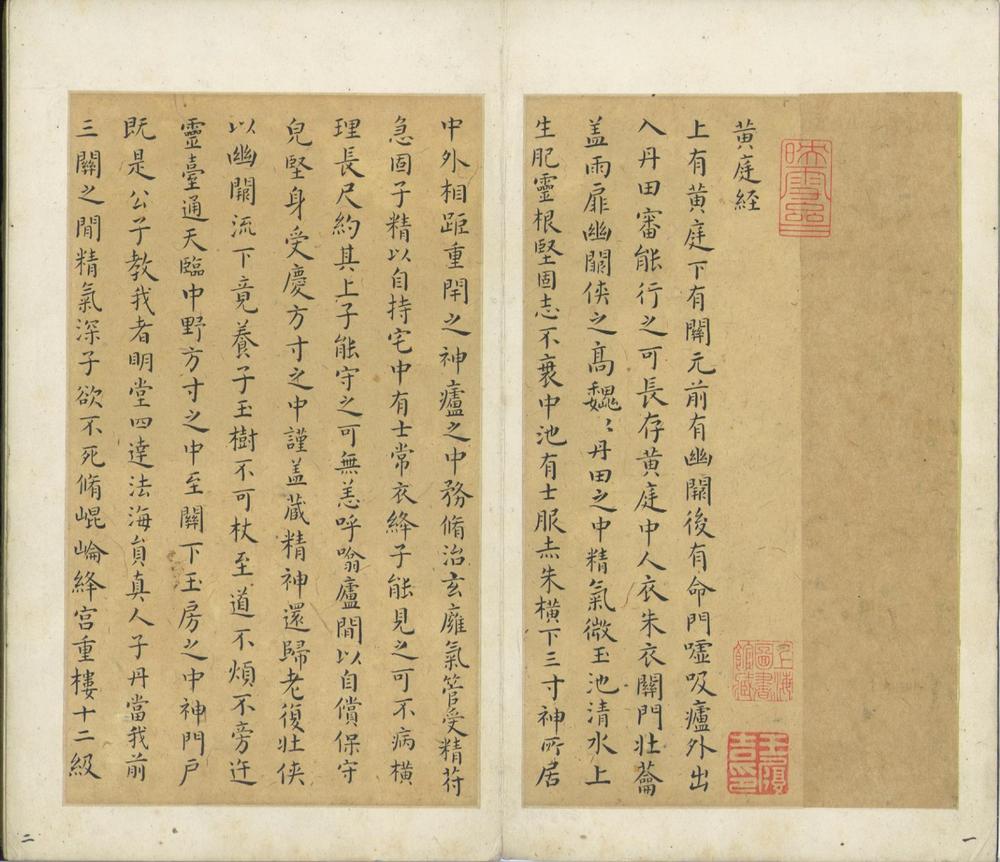 黄庭经
上有黄庭下有關元前有幽闕後有命門嘘吸廬外出
入丹田審能行之可長存黄庭中人衣朱衣關門壮蘥
盖兩扉幽闕侠之髙魏〻丹田之中精氣微玉池清水上
生肥靈根堅固志不衰中池有士服赤朱横下三寸神所居
中外相距重閇之神廬之中務脩治玄廱氣管受精苻
急固子精以自持宅中有士常衣絳子能見之可不病横
理長尺約其上子能守之可無恙呼噏廬間以自償保守
皃堅身受慶方寸之中謹盖藏精神還歸老復壮侠
以幽闕流下竟養子玉樹不可杖至道不煩不旁迕
靈臺通天臨中野方寸之中至關下玉房之中神門户
既是公子教我者明堂四達法海負真人子丹當我前
三關之間精氣深子欲不死脩崐崘絳宫重樓十二級
上海
圖書
館藏
一
二